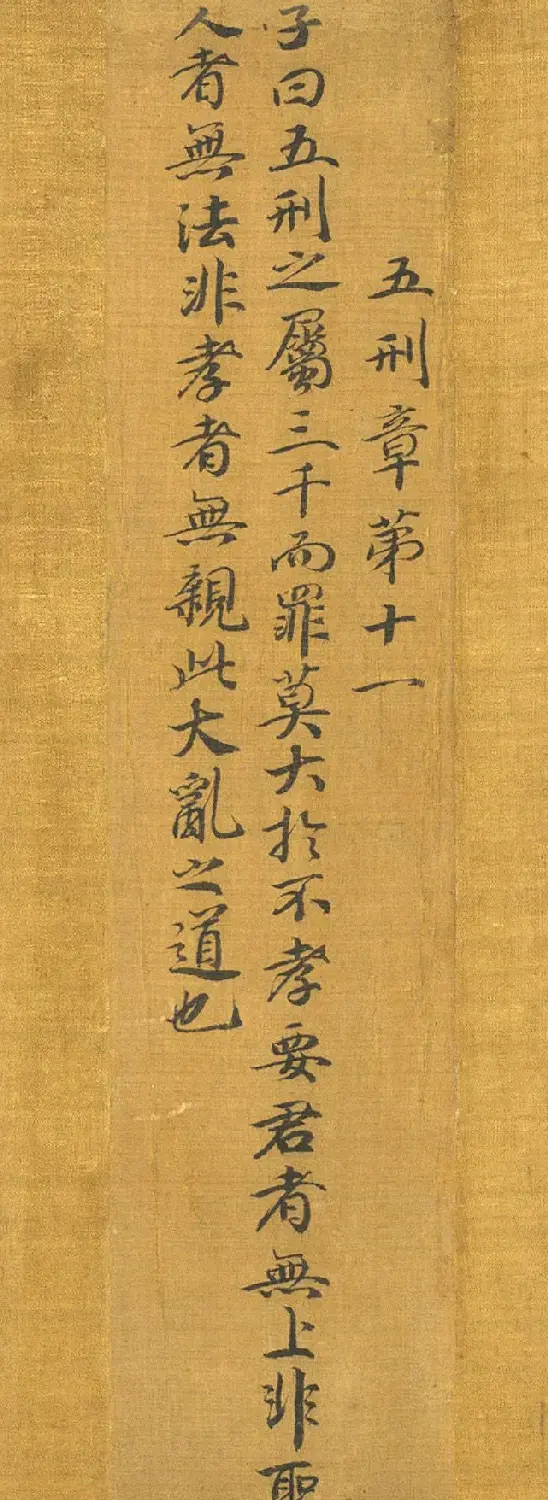 五刑章第十一
子曰五刑之屬三千而罪莫大於不孝要君者無上非聖
人者無法非孝者無親此大亂之道也